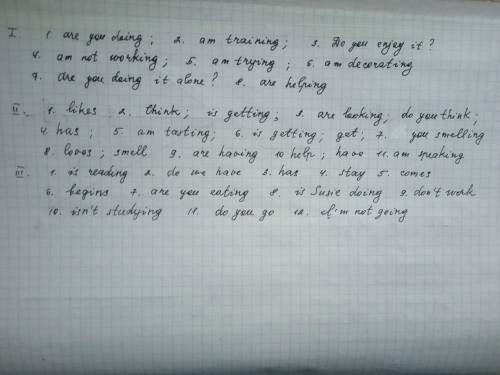 I. 1. are you doing; 2. am training; 3. Do you enjoy it?
4. am not working; 5. am trying; 6. am decorating
7. Are you doing it alone? 8. are helping
II. 1. likes 2. think; is getting; 3. are looking; do you think;
4. has; 5. am tasting; 6. is getting; get; 7. you smelling
8. loves; smell 9. are having 10 help; have 11. am speaking
III. 1. is reading 2. do we have 3. has 4. stay 5. comes
6. begins 7. are you eating 8. is Susie doing 9. don't work
10. isn't studying 11. do you go 12. I'm not going